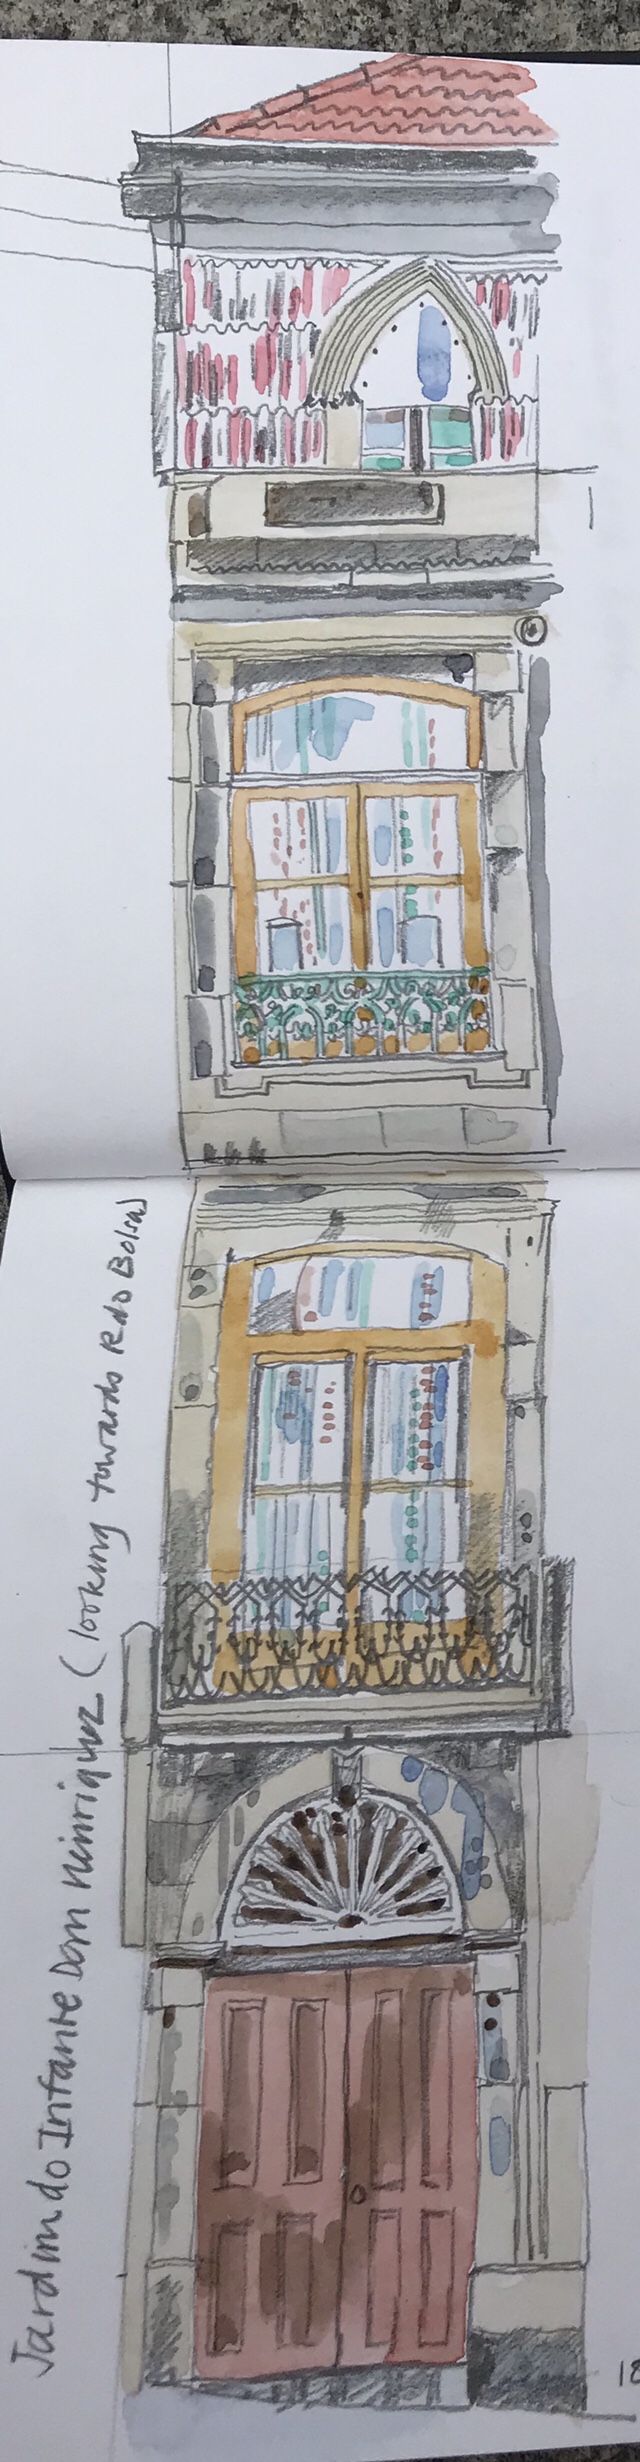 Jardim do Infante Dom Henrique (looking towards R do Bolsa)
18